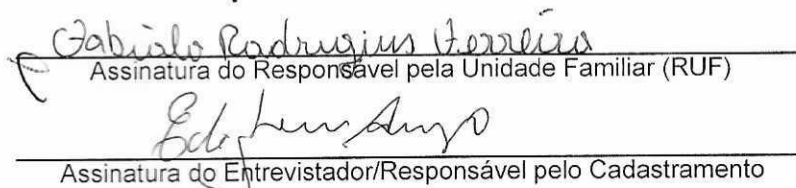 Rodrigius Ferreira
Assinatura do Responsável pela Unidade Familiar (RUF)
Assinatura do Entrevistador/Responsável pelo Cadastramento